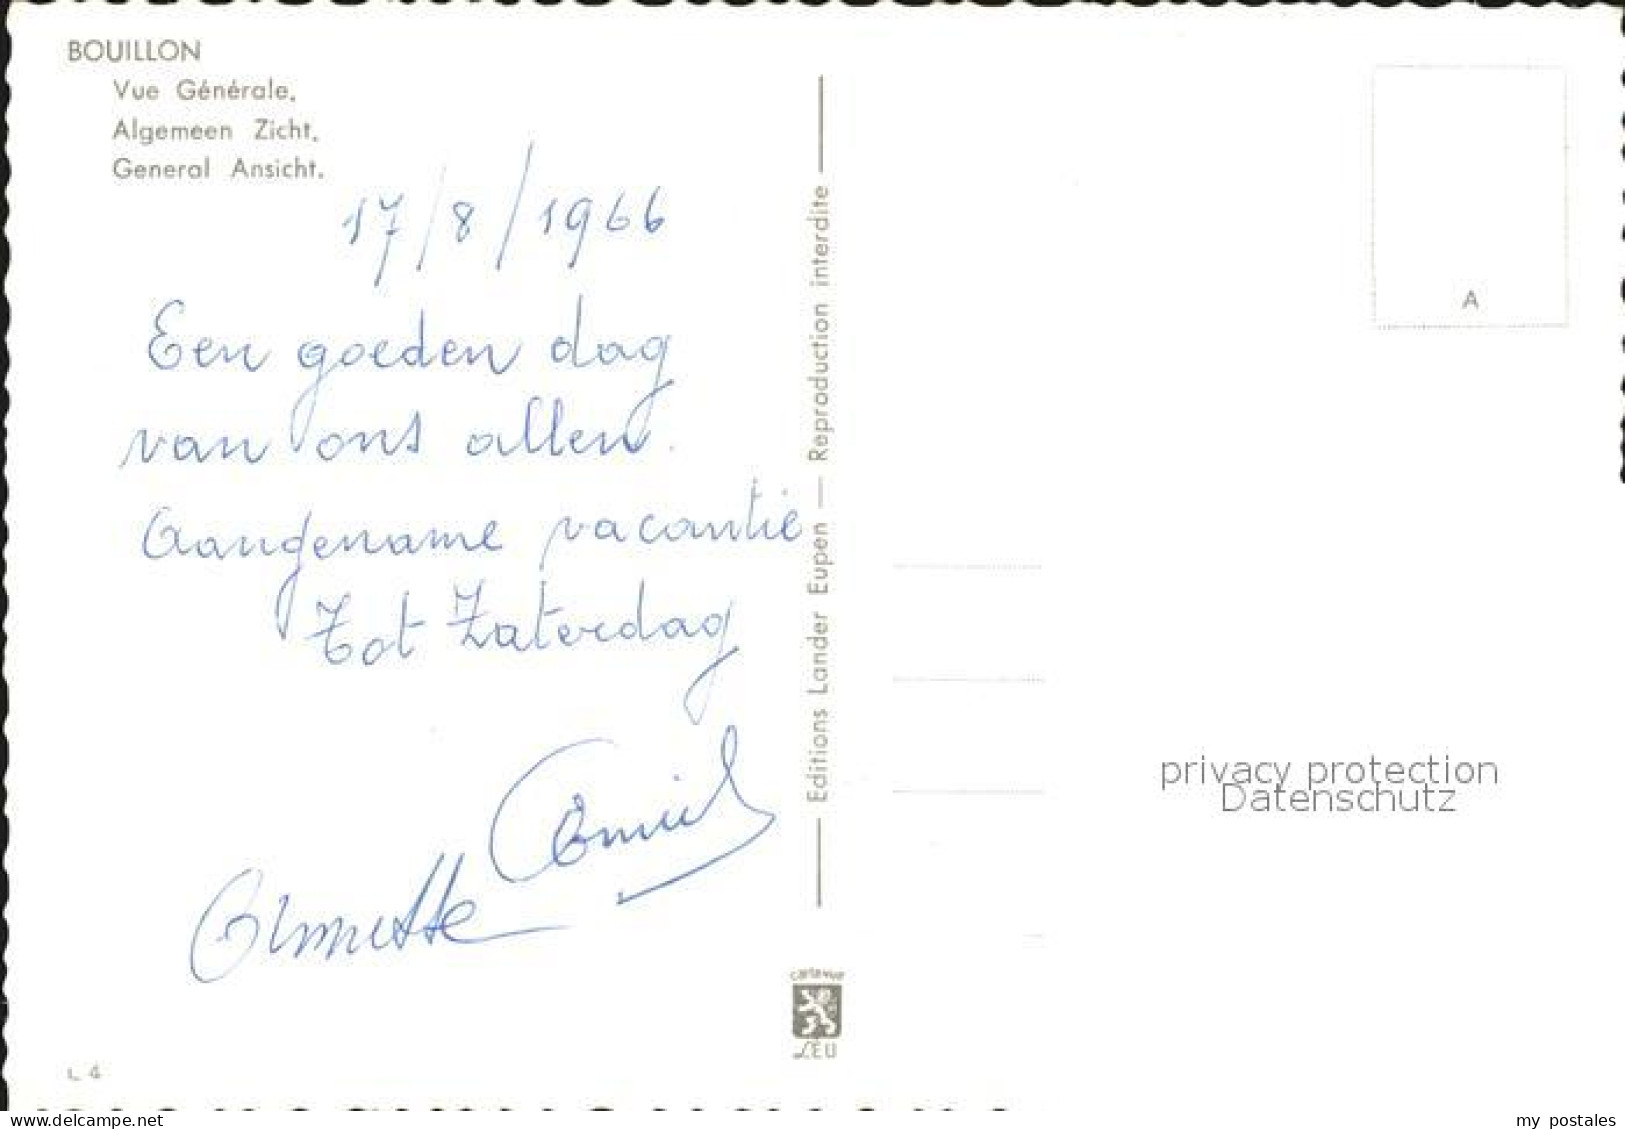 BOUILLON
Vue Générale.
Algemeen Zicht.
General Ansicht.
17/8/1966
Een goeden dag
van ons allen.
Aangename vacantie
Tot Zaterdag
Editions Lander Eupen — Reproduction interdite
A
privacy protection
Datenschutz
carte vue
LEU
L 4
www.delcampe.net
my_postales